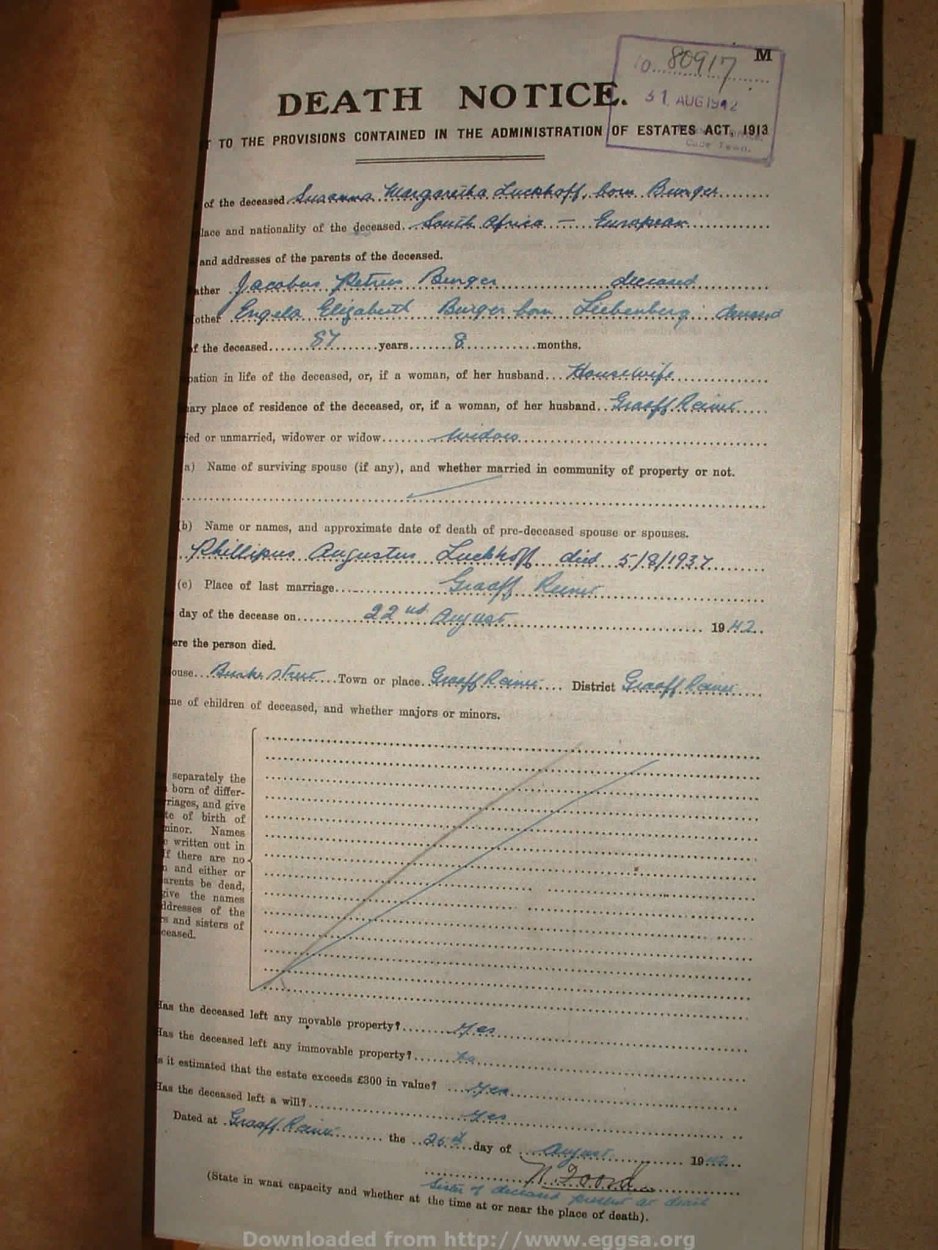 M
No. 80917
31 AUG 1942
Cape Town.
DEATH NOTICE.
T TO THE PROVISIONS CONTAINED IN THE ADMINISTRATION OF ESTATES ACT, 1913
of the deceased Susanna Margaretha Luckhoff, born Burger
lace and nationality of the deceased. South Africa — European
and addresses of the parents of the deceased.
ather Jacobus Petrus Burger deceased
other Engela Elizabeth Burger born Liebenberg deceased
of the deceased 87 years 8 months.
pation in life of the deceased, or, if a woman, of her husband Housewife
nary place of residence of the deceased, or, if a woman, of her husband Graaff Reinet
ied or unmarried, widower or widow widow
a) Name of surviving spouse (if any), and whether married in community of property or not.
b) Name or names, and approximate date of death of pre-deceased spouse or spouses.
Phillipus Augustus Luckhoff died 5/8/1937
(c) Place of last marriage Graaff Reinet
day of the decease on 22nd August 1942
ere the person died.
ouse Bourke Street Town or place Graaff Reinet District Graaff Reinet
me of children of deceased, and whether majors or minors.
separately the
born of differ-
riages, and give
te of birth of
minor. Names
e written out in
If there are no
n and either or
arents be dead,
give the names
ddresses of the
rs and sisters of
ceased.
Has the deceased left any movable property? Yes
Has the deceased left any immovable property? No
s it estimated that the estate exceeds £300 in value? Yes
Has the deceased left a will? Yes
Dated at Graaff Reinet the 26th day of August 1942
Sister of deceased present at death
(State in what capacity and whether at the time at or near the place of death).
Downloaded from http://www.eggsa.org